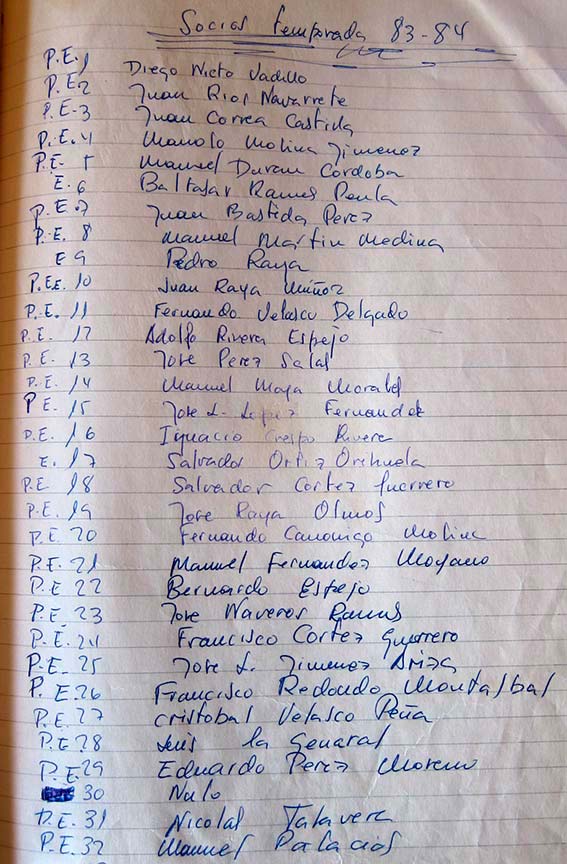 Socios temporada 83-84
P.E. 1 Diego Nieto Vadillo
P.E. 2 Juan Rios Navarrete
P.E. 3 Juan Correa Castida
P.E. 4 Manolo Molina Jimenez
P.E. 5 Manuel Duran Cordoba
E. 6 Baltasar Ramos Peula
P.E. 7 Juan Bastida Perez
P.E. 8 Manuel Martin Medina
E 9 Pedro Raya
P.E. 10 Juan Raya Muñoz
P.E. 11 Fernando Velasco Delgado
P.E. 12 Adolfo Rivera Espejo
P.E. 13 Jose Perez Salas
P.E. 14 Manuel Moya Morales
P.E. 15 Jose L. Lopez Fernandez
P.E. 16 Ignacio Crespo Rivera
E. 17 Salvador Ortiz Orihuela
P.E 18 Salvador Cortez Guerrero
P.E. 19 Jose Raya Olmos
P.E. 20 Fernando Canonigo Molina
P.E. 21 Manuel Fernandez Moyano
P.E 22 Bernardo Espejo
P.E. 23 Jose Naveros Ramos
P.E. 24 Francisco Cortez Guerrero
P.E. 25 Jose L. Jimenez Ariza
P. E 26 Francisco Redondo Montalbal
P.E. 27 Cristobal Velasco Peña
P.E 28 Luis la General
P.E. 29 Eduardo Perez Moreno
30 Nulo
P.E. 31 Nicolas Talavera
P.E. 32 Manuel Palacios